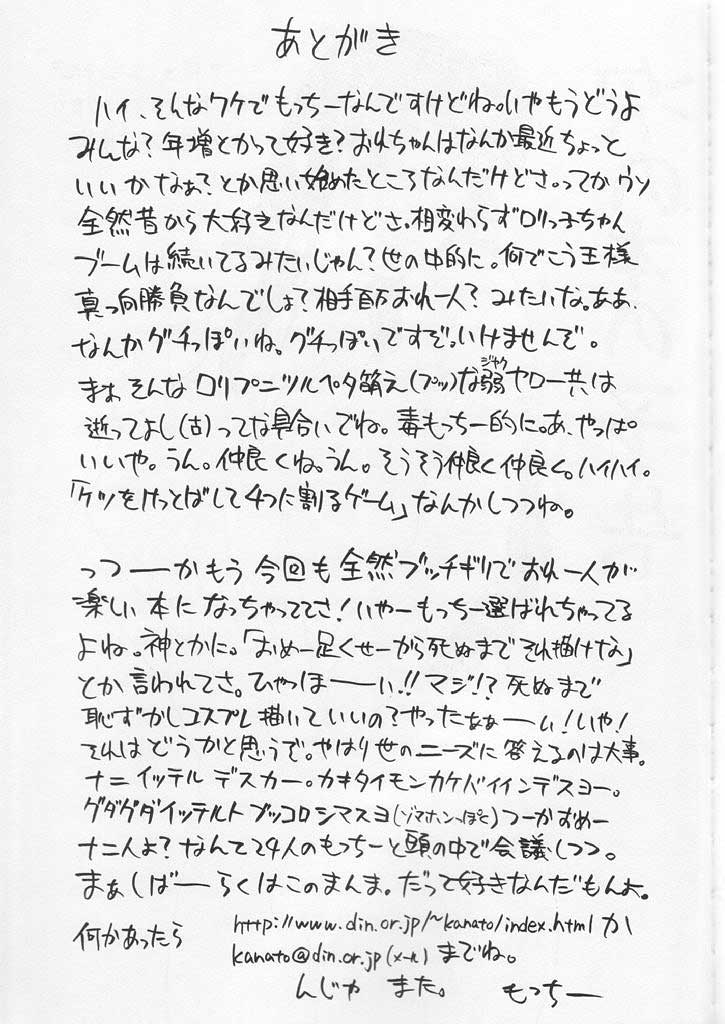 あとがき
ハイ、そんなワケでもっちーなんですけどね。いやもうどうよ
みんな？年増とかって好き？おれちゃんはなんか最近ちょっと
いいかなぁ？とか思い始めたところなんだけどさ。ってかウソ
全然昔から大好きなんだけどさ。相変わらずロリっ子ちゃん
ブームは続いてるみたいじゃん？世の中的に。何でこう王様
真っ向勝負なんでしょ？相手百万おれ一人？みたいな。ああ、
なんかグチっぽいね。グチっぽいですぞ。いけませんぞ。
まぁそんなロリプニツルペタ萌え(プッ)な弱(ジャク)ヤロー共は
逝ってよし(古)ってな具合いでね。毒もっちー的に。あ、やっぱ
いいや。うん。仲良くね。うん。そうそう仲良く仲良く。ハイハイ。
「ケツをけっとばして4つに割るゲーム」なんかしつつね。
っつーかもう今回も全然ブッチギリでおれ一人が
楽しい本になっちゃっててさ！いやーもっちー選ばれちゃってる
よね。神とかに。「おめー足くせーから死ぬまでそれ描けな」
とか言われてさ。ひゃっほーーい!!マジ!?死ぬまで
恥ずかしコスプレ描いていいの？やったぁぁーい！いや！
それはどうかと思うで。やはり世のニーズに答えるのは大事。
ナニイッテルデスカー。カキタイモンカケバイインデスヨー。
グダグダイッテルトブッコロシマスヨ(ゾマホンっぽく)つーかおめー
ナニ人よ？なんて24人のもっちーと頭の中で会議しつつ。
まぁしばーらくはこのまんま。だって好きなんだもんよ。
何かあったら http://www.din.or.jp/~kanato/index.html か
kanato@din.or.jp(メール)までね。
んじゃ また。 もっちー